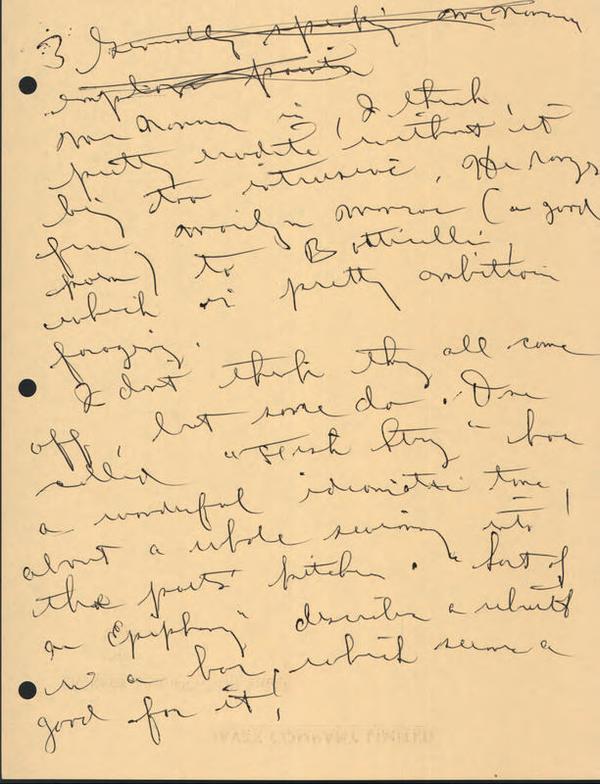 3 Generally speaking Mr Norman
employs
Mr Norman is, I think,
pretty erudite, without it
being too intrusive. He ranges
from Marilyn Monroe (a good
poem) to Botticelli,
which is pretty ambitious
foraging.
I dont think they all come
off, but some do. One
called "Fish Story" has
a wonderful idiomatic tone,
about a whale swimming into
the poets' kitchen. "Sort of
an Epiphany" describes a
in a bar, which seems a
good for it!